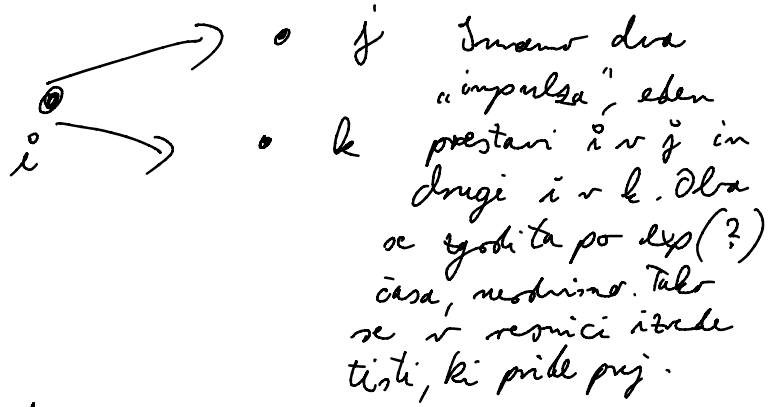 j Imamo dva
"impulza", eden
i k prestavi i v j in
drugi i v k. Oba
se zgodita po exp(?)
časa, neodvisno. Tako
se v resnici izvede
tisti, ki pride prej.